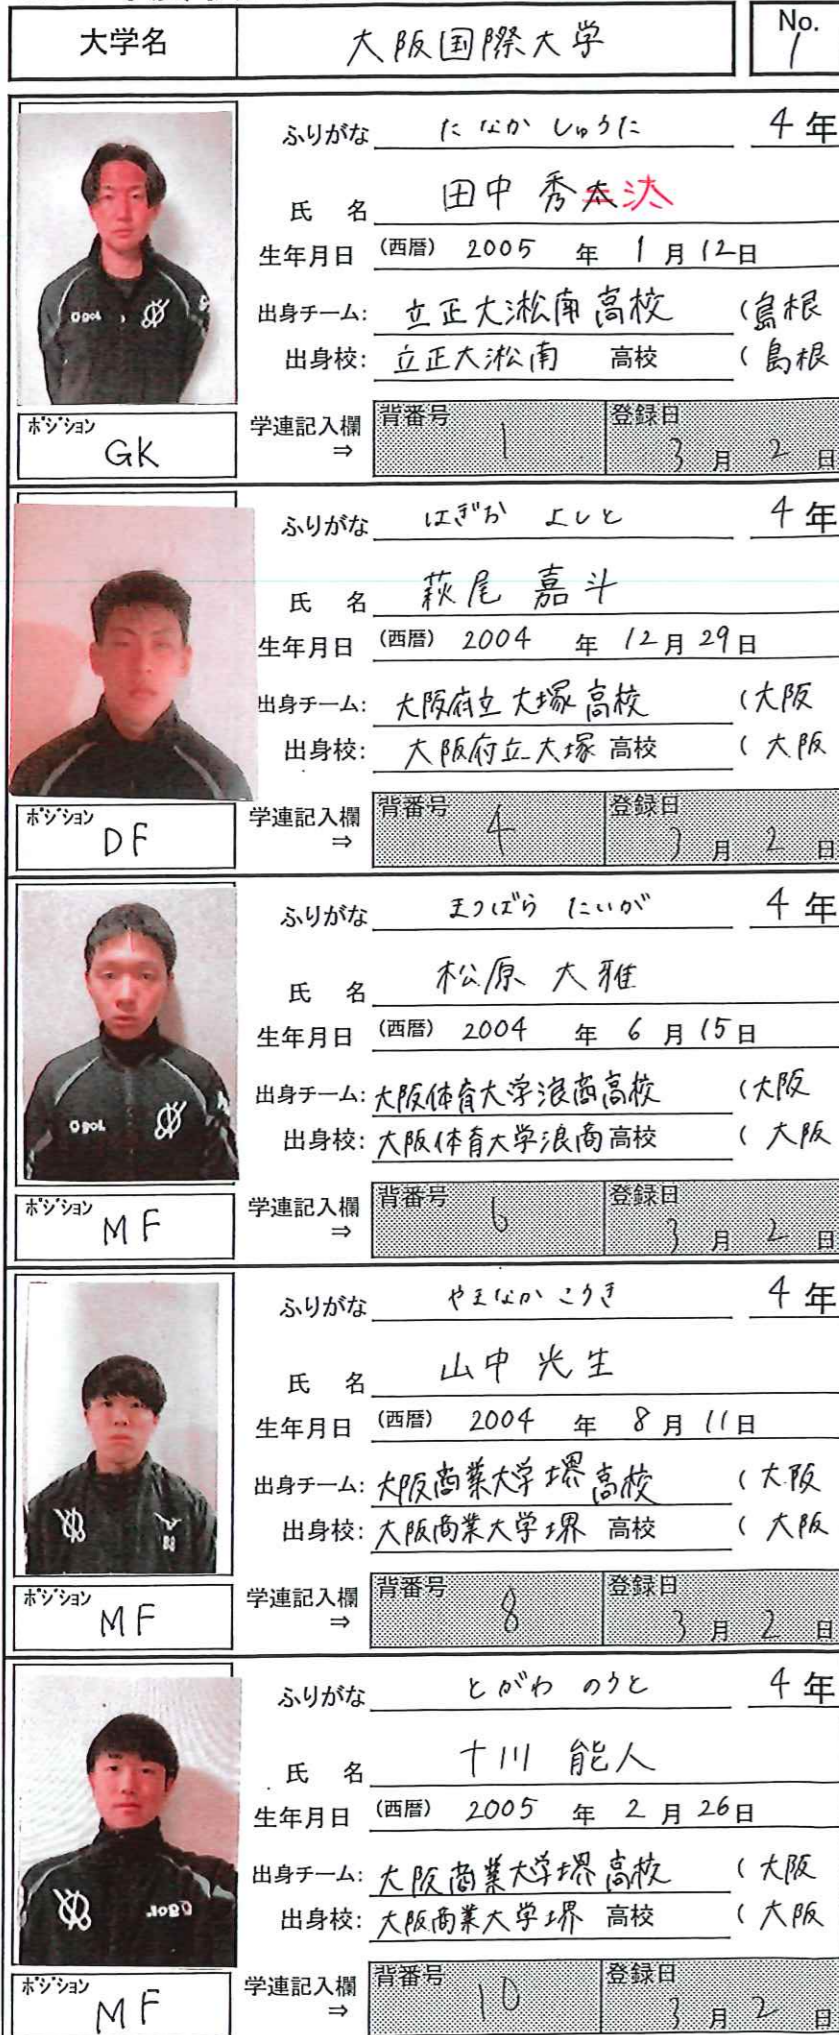 大学名 大阪国際大学 No. 1
ふりがな たなか しゅうた 4年
氏 名 田中 秀太 汰
生年月日 (西暦) 2005 年 1月12日
出身チーム: 立正大淞南高校 (島根
出身校: 立正大淞南 高校 (島根
ポジション GK 学連記入欄 ⇒ 背番号 1 登録日 3月2日
ふりがな はぎお よしと 4年
氏 名 萩尾 嘉斗
生年月日 (西暦) 2004 年 12月29日
出身チーム: 大阪府立大塚高校 (大阪
出身校: 大阪府立大塚 高校 (大阪
ポジション DF 学連記入欄 ⇒ 背番号 4 登録日 3月2日
ふりがな まつばら たいが 4年
氏 名 松原 大雅
生年月日 (西暦) 2004 年 6月15日
出身チーム: 大阪体育大学浪商高校 (大阪
出身校: 大阪体育大学浪商 高校 (大阪
ogol
ポジション MF 学連記入欄 ⇒ 背番号 6 登録日 3月2日
ふりがな やまなか こうき 4年
氏 名 山中 光生
生年月日 (西暦) 2004 年 8月11日
出身チーム: 大阪商業大学堺高校 (大阪
出身校: 大阪商業大学堺 高校 (大阪
ポジション MF 学連記入欄 ⇒ 背番号 8 登録日 3月2日
ふりがな とがわ のうと 4年
氏 名 十川 能人
生年月日 (西暦) 2005 年 2月26日
出身チーム: 大阪商業大学堺高校 (大阪
出身校: 大阪商業大学堺 高校 (大阪
ポジション MF 学連記入欄 ⇒ 背番号 10 登録日 3月2日